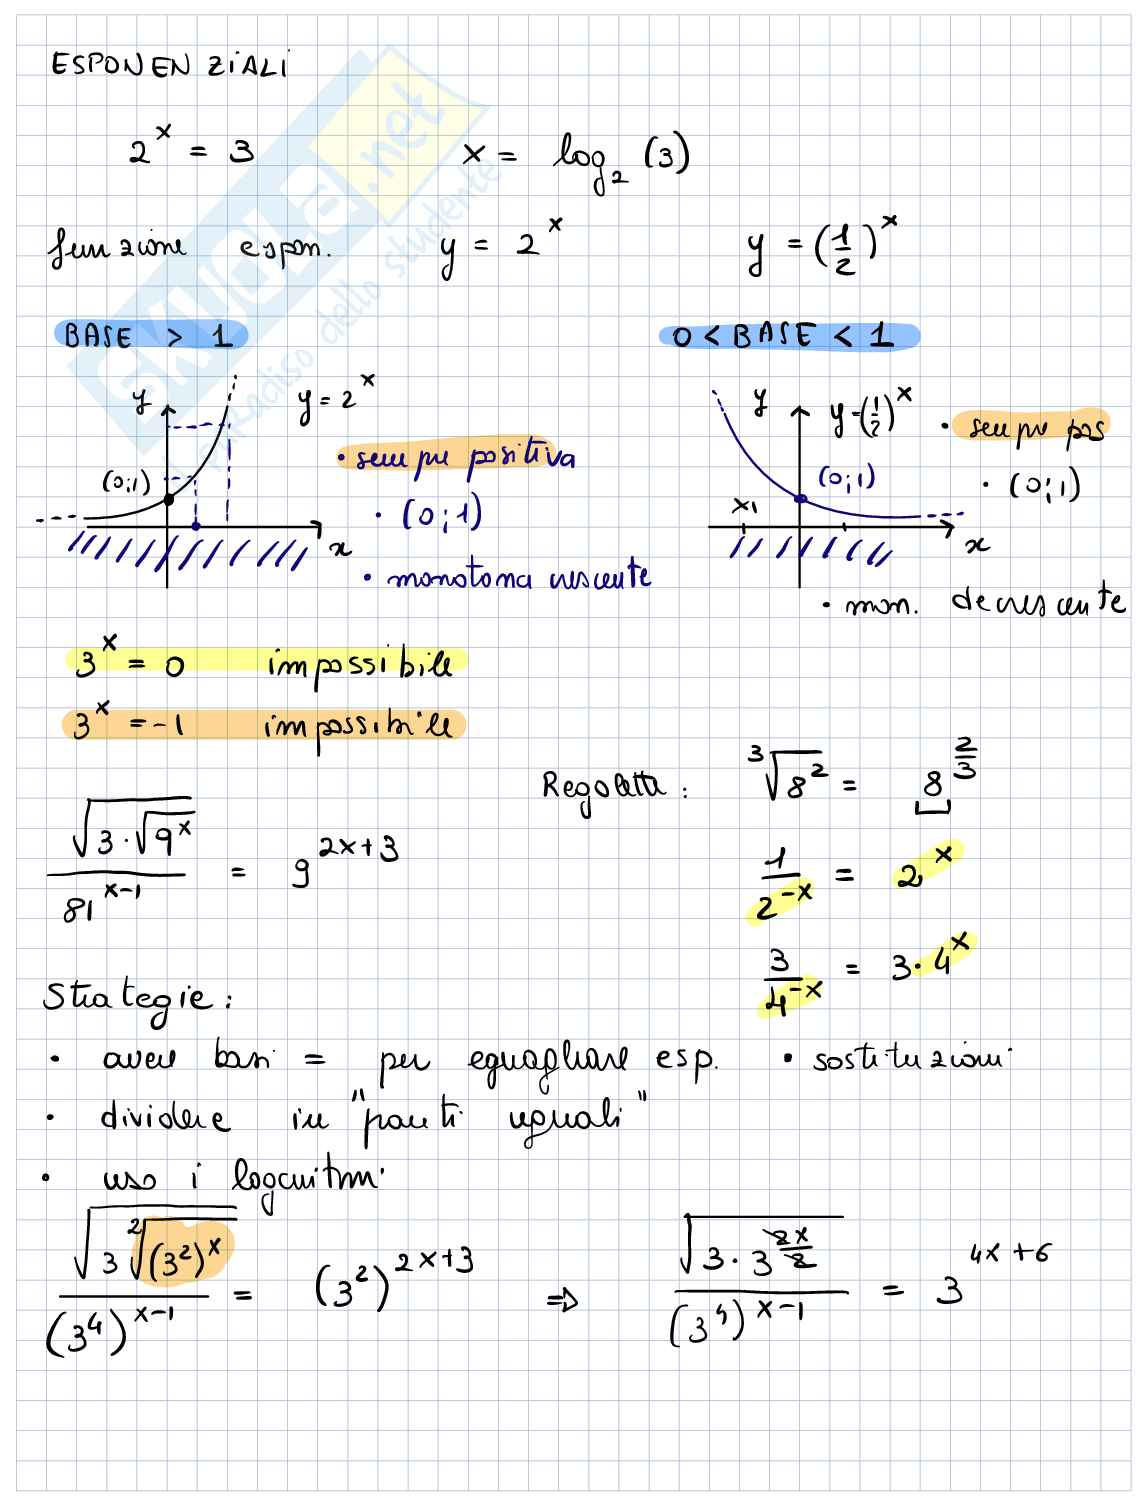 ESPONENZIALI
2^x = 3   x = log_2 (3)
funzione espon.   y = 2^x   y = (1/2)^x
BASE > 1   0 < BASE < 1
y   y = 2^x   y   y = (1/2)^x   • sempre pos
• sempre positiva
(0;1)   (0;1)   • (0;1)
• (0;1)   x1
x   x
• monotona crescente
• mon. decrescente
3^x = 0   impossibile
3^x = -1   impossibile
Regolette :   ∛(8^2) = 8^(2/3)
√(3·√(9^x)) / 81^(x-1) = 9^(2x+3)
1/2^(-x) = 2^x
3/4^(-x) = 3·4^x
Strategie :
• avere basi = per eguagliare esp.   • sostituzioni
• dividere in "parti uguali"
• uso i logaritmi
√(3 ²√((3^2)^x)) / (3^4)^(x-1) = (3^2)^(2x+3)   ⇒   √(3·3^(2x/2)) / (3^4)^(x-1) = 3^(4x+6)
SKUOLA.net
il paradiso dello studente